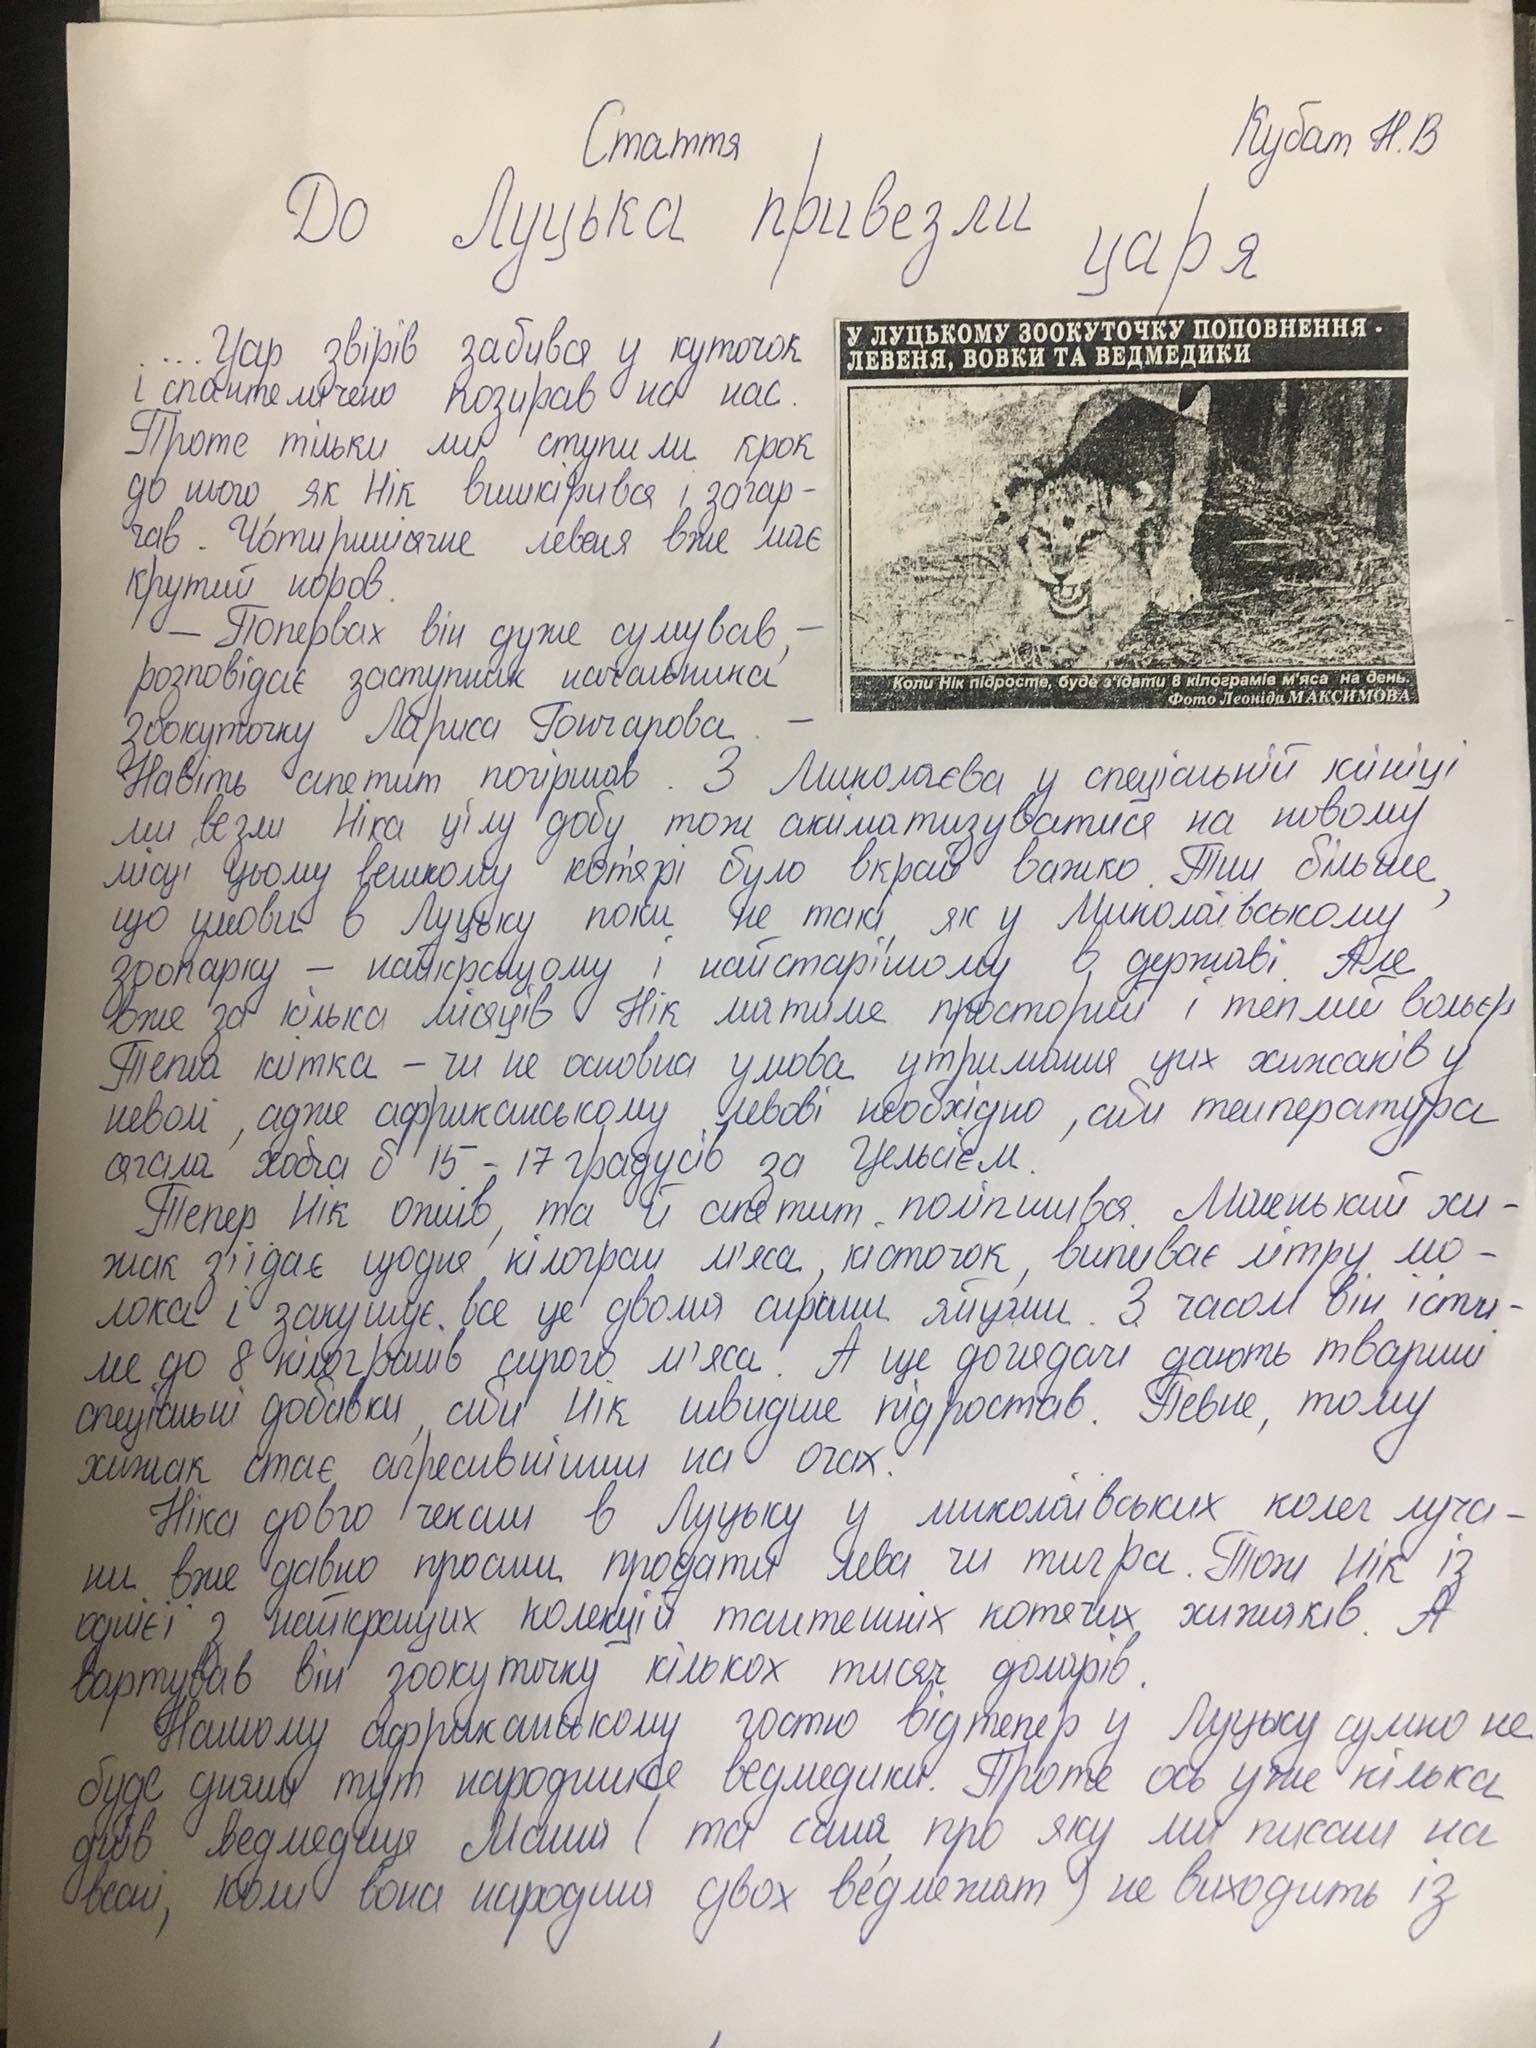 Стаття
Кубат Н.В
До Луцька привезли царя
... Цар звірів забився у куточок
і спантеличено позирав на нас.
Проте тільки ми ступили крок
до нього, як Нік вишкірився і загар-
чав. Чотиримісячне левеня вже має
крутий норов.
У ЛУЦЬКОМУ ЗООКУТОЧКУ ПОПОВНЕННЯ -
ЛЕВЕНЯ, ВОВКИ ТА ВЕДМЕДИКИ
Коли Нік підросте, буде з'їдати 8 кілограмів м'яса на день.
Фото Леоніда МАКСИМОВА
— Попервах він дуже сумував, —
розповідає заступник начальника
зоокуточку Лариса Гончарова. —
Навіть апетит погіршав. З Миколаєва у спеціальній клітці
ми везли Ніка цілу добу тож акліматизуватися на новому
місці цьому великому котярі було вкрай важко. Тим більше,
що умови в Луцьку поки не такі, як у Миколаївському
зоопарку — найкращому і найстарішому в державі. Але
вже за кілька місяців Нік матиме просторий і теплий вольєр
Тепла клітка — чи не основна умова утримання цих хижаків у
неволі, адже африканському левові необхідно, аби температура
сягала хоча б 15 - 17 градусів за Цельсієм.
Тепер Нік ожив, та й апетит поліпшився. Маленький хи-
жак з'їдає щодня кілограм м'яса, кісточок, випиває літру мо-
лока і закушує все це двома сирими яйцями. З часом він їсти-
ме до 8 кілограмів сирого м'яса. А ще доглядачі дають тварині
спеціальні добавки, аби Нік швидше підростав. Певне, тому
хижак стає агресивнішим на очах.
Ніка довго чекали в Луцьку у миколаївських колег луча-
ни вже давно просили продати лева чи тигра. Тож Нік із
однієї з найкращих колекцій тамтешніх котячих хижаків. А
вартував він зоокуточку кількох тисяч доларів.
Нашому африканському гостю відтепер у Луцьку сумно не
буде днями тут народилися ведмедики. Проте ось уже кілька
днів ведмедиця Маша ( та сама, про яку ми писали на
весні, коли вона народила двох ведмежат ) не виходить із